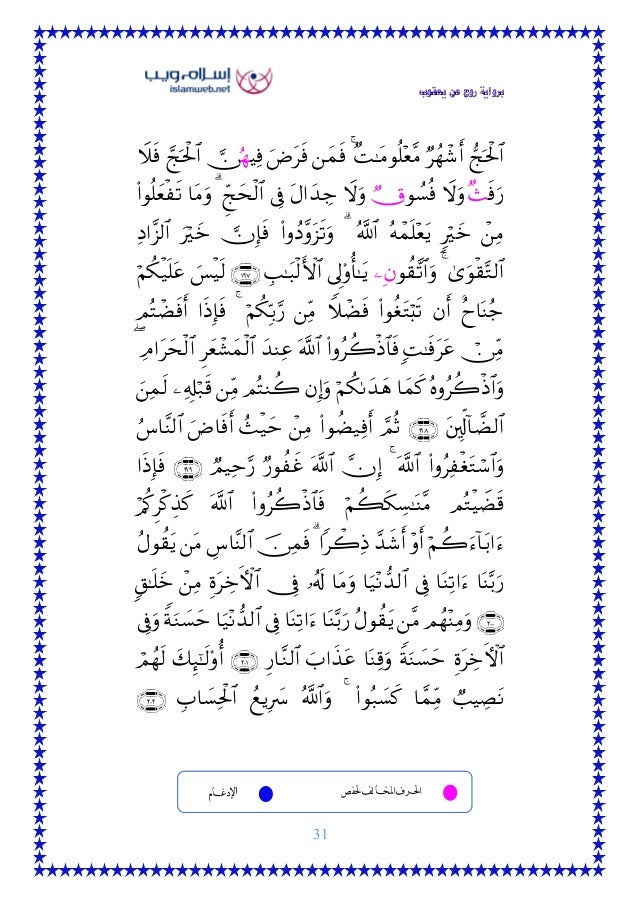 إسلام ويب
islamweb.net
برواية روح عن يعقوب
ٱلۡحَجُّ أَشۡهُرٞ مَّعۡلُومَٰتٞۚ فَمَن فَرَضَ فِيهُنَّ ٱلۡحَجَّ فَلَا
رَفَثٞ وَلَا فُسُوقٞ وَلَا جِدَالَ فِي ٱلۡحَجِّۗ وَمَا تَفۡعَلُواْ
مِنۡ خَيۡرٖ يَعۡلَمۡهُ ٱللَّهُۗ وَتَزَوَّدُواْ فَإِنَّ خَيۡرَ ٱلزَّادِ
ٱلتَّقۡوَىٰۖ وَٱتَّقُونِۦ يَٰٓأُوْلِي ٱلۡأَلۡبَٰبِ ۝١٩٧ لَيۡسَ عَلَيۡكُمۡ
جُنَاحٌ أَن تَبۡتَغُواْ فَضۡلٗا مِّن رَّبِّكُمۡۚ فَإِذَآ أَفَضۡتُم
مِّنۡ عَرَفَٰتٖ فَٱذۡكُرُواْ ٱللَّهَ عِندَ ٱلۡمَشۡعَرِ ٱلۡحَرَامِۖ
وَٱذۡكُرُوهُ كَمَا هَدَىٰكُمۡ وَإِن كُنتُم مِّن قَبۡلِهِۦ لَمِنَ
ٱلضَّآلِّينَ ۝١٩٨ ثُمَّ أَفِيضُواْ مِنۡ حَيۡثُ أَفَاضَ ٱلنَّاسُ
وَٱسۡتَغۡفِرُواْ ٱللَّهَۚ إِنَّ ٱللَّهَ غَفُورٞ رَّحِيمٞ ۝١٩٩ فَإِذَا
قَضَيۡتُم مَّنَٰسِكَكُمۡ فَٱذۡكُرُواْ ٱللَّهَ كَذِكۡرِكُمۡ
ءَابَآءَكُمۡ أَوۡ أَشَدَّ ذِكۡرٗاۗ فَمِنَ ٱلنَّاسِ مَن يَقُولُ
رَبَّنَآ ءَاتِنَا فِي ٱلدُّنۡيَا وَمَا لَهُۥ فِي ٱلۡأٓخِرَةِ مِنۡ خَلَٰقٖ
۝٢٠٠ وَمِنۡهُم مَّن يَقُولُ رَبَّنَآ ءَاتِنَا فِي ٱلدُّنۡيَا حَسَنَةٗ وَفِي
ٱلۡأٓخِرَةِ حَسَنَةٗ وَقِنَا عَذَابَ ٱلنَّارِ ۝٢٠١ أُوْلَٰٓئِكَ لَهُمۡ
نَصِيبٞ مِّمَّا كَسَبُواْۚ وَٱللَّهُ سَرِيعُ ٱلۡحِسَابِ ۝٢٠٢
الحرف المخالف لحفص الإدغام
31